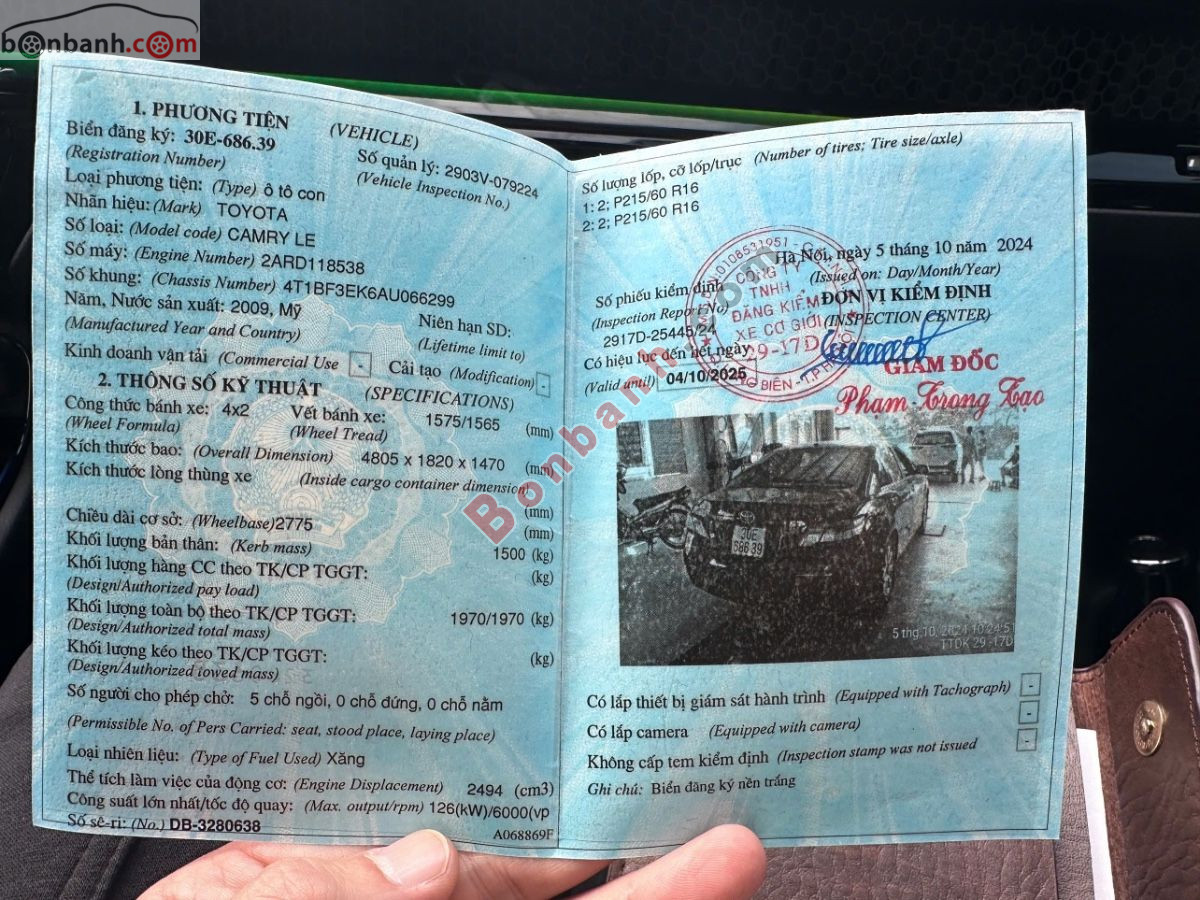 bonbanh.com
1. PHƯƠNG TIỆN (VEHICLE)
Biển đăng ký: 30E-686.39 Số quản lý: 2903V-079224
(Registration Number) (Vehicle Inspection No.)
Loại phương tiện: (Type) ô tô con
Nhãn hiệu: (Mark) TOYOTA
Số loại: (Model code) CAMRY LE
Số máy: (Engine Number) 2ARD118538
Số khung: (Chassis Number) 4T1BF3EK6AU066299
Năm, Nước sản xuất: 2009, Mỹ Niên hạn SD:
(Manufactured Year and Country) (Lifetime limit to)
Kinh doanh vận tải (Commercial Use - Cải tạo (Modification) -
2. THÔNG SỐ KỸ THUẬT (SPECIFICATIONS)
Công thức bánh xe: 4x2 Vết bánh xe: 1575/1565 (mm)
(Wheel Formula) (Wheel Tread)
Kích thước bao: (Overall Dimension) 4805 x 1820 x 1470 (mm)
Kích thước lòng thùng xe (Inside cargo container dimension)
(mm)
Chiều dài cơ sở: (Wheelbase) 2775 (mm)
Khối lượng bản thân: (Kerb mass) 1500 (kg)
Khối lượng hàng CC theo TK/CP TGGT: (kg)
(Design/Authorized pay load)
Khối lượng toàn bộ theo TK/CP TGGT: 1970/1970 (kg)
(Design/Authorized total mass)
Khối lượng kéo theo TK/CP TGGT: (kg)
(Design/Authorized towed mass)
Số người cho phép chở: 5 chỗ ngồi, 0 chỗ đứng, 0 chỗ nằm
(Permissible No. of Pers Carried: seat, stood place, laying place)
Loại nhiên liệu: (Type of Fuel Used) Xăng
Thể tích làm việc của động cơ: (Engine Displacement) 2494 (cm3)
Công suất lớn nhất/tốc độ quay: (Max. output/rpm) 126(kW)/6000(vp
Số sê-ri: (No.) DB-3280638 A068869F
Số lượng lốp, cỡ lốp/trục (Number of tires; Tire size/axle)
1: 2; P215/60 R16
2: 2; P215/60 R16
Hà Nội, ngày 5 tháng 10 năm 2024
(Issued on: Day/Month/Year)
Số phiếu kiểm định ĐƠN VỊ KIỂM ĐỊNH
(Inspection Report No) (INSPECTION CENTER)
2917D-25445/24
Có hiệu lực đến hết ngày
(Valid until) 04/10/2025
0108531951
CÔNG TY
TNHH
ĐĂNG KIỂM
XE CƠ GIỚI
29-17D
GIÁM ĐỐC
Phạm Trọng Tạo
30E
686.39
5 thg.10, 2024 10:24:51
TTDK 29-17D
Có lắp thiết bị giám sát hành trình (Equipped with Tachograph) -
Có lắp camera (Equipped with camera) -
Không cấp tem kiểm định (Inspection stamp was not issued -
Ghi chú: Biển đăng ký nền trắng
Bonbanh.com